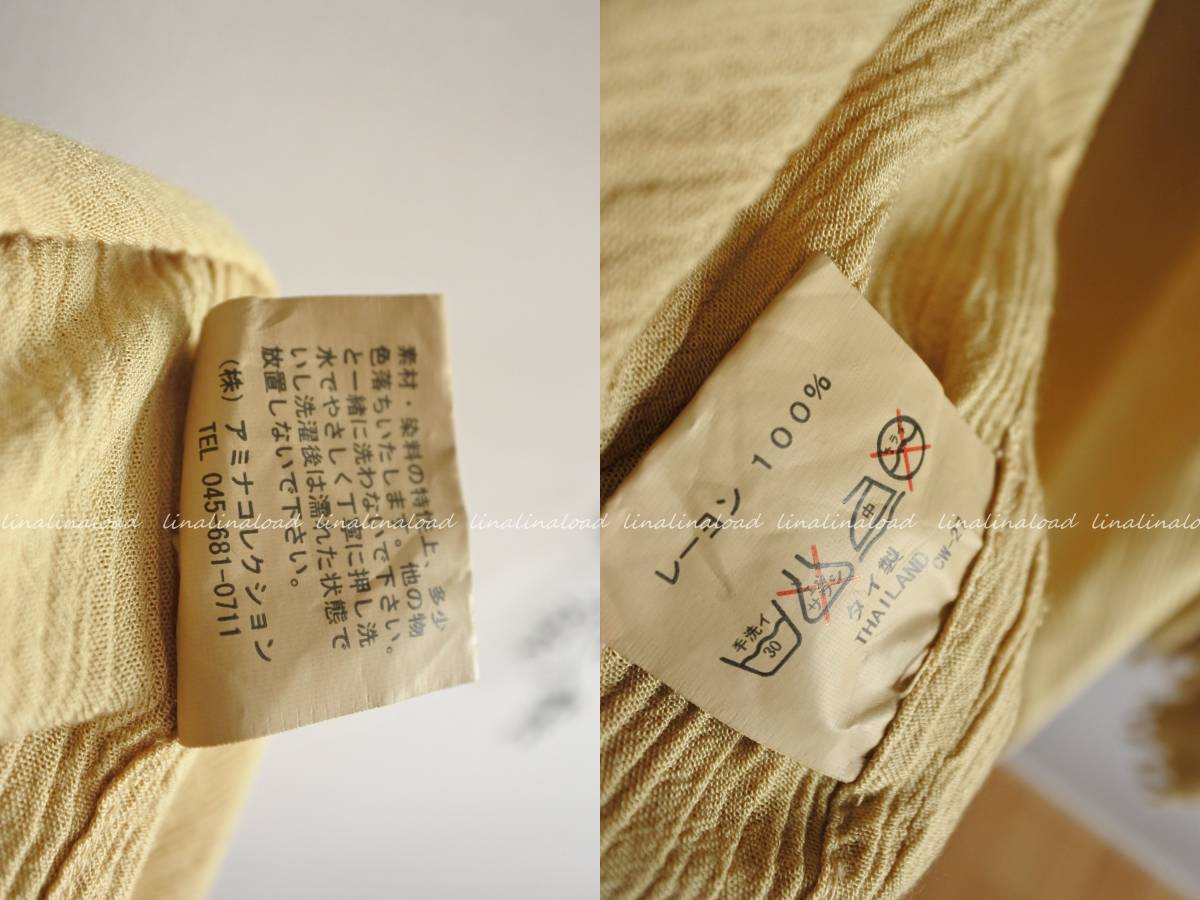 素材・染料の特性上、多少
色落ちいたします。他の物
と一緒に洗わないで下さい。
水でやさしく丁寧に押し洗
いし洗濯後は濡れた状態で
放置しないで下さい。
(株) アミナコレクション
TEL 045-681-0711
レーヨン 100%
手洗イ
30
中
タイ製
THAILAND
linalinaload linalinaload linalinaload linalinaload linalinaload linalinaload linalinaload